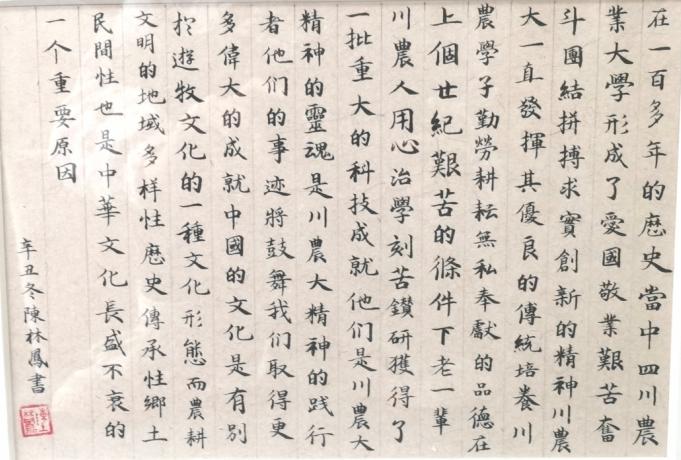 在一百多年的歷史當中四川農
業大學形成了愛國敬業艱苦奮
斗團結拼搏求實創新的精神川農
大一直發揮其優良的傳統培養川
農學子勤勞耕耘無私奉獻的品德在
上個世紀艱苦的條件下老一輩
川農人用心治學刻苦鑽研獲得了
一批重大的科技成就他们是川農大
精神的靈魂是川農大精神的践行
者他们的事迹將鼓舞我们取得更
多偉大的成就中國的文化是有别
於遊牧文化的一種文化形態而農耕
文明的地域多样性歷史傳承性鄉土
民間性也是中華文化長盛不衰的
一个重要原因
辛丑冬陳林鳳書